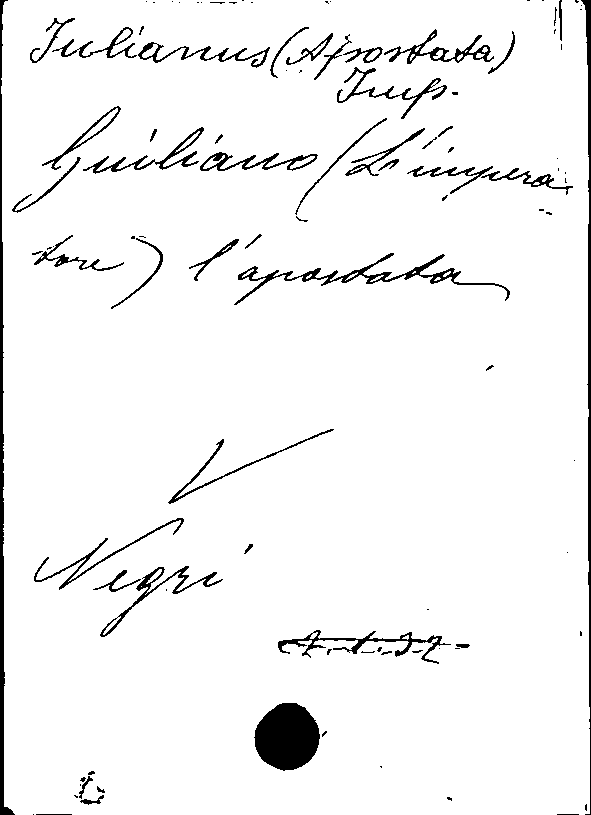 Julianus (Apostata)
Imp.
Giuliano (L'impera-
tore) l'apostata
V
Negri